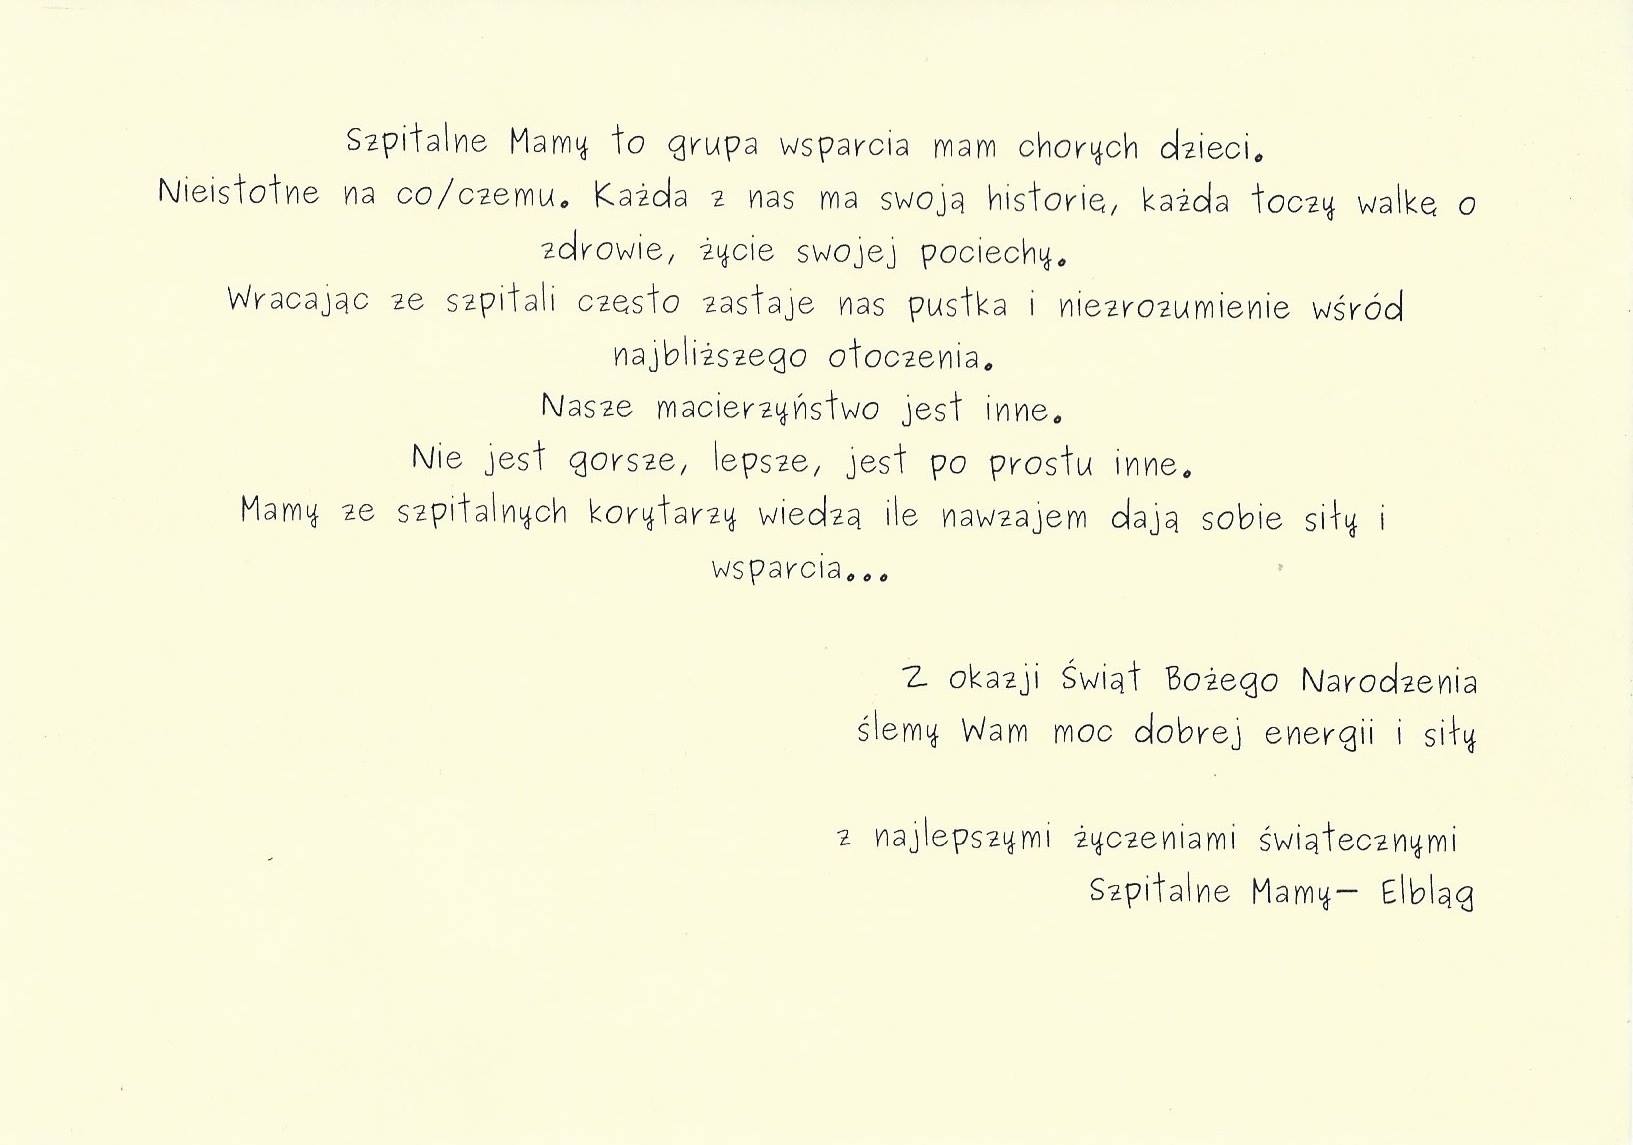 Szpitalne Mamy to grupa wsparcia mam chorych dzieci.
Nieistotne na co/czemu. Każda z nas ma swoją historię, każda toczy walkę o
zdrowie, życie swojej pociechy.
Wracając ze szpitali często zastaje nas pustka i niezrozumienie wśród
najbliższego otoczenia.
Nasze macierzyństwo jest inne.
Nie jest gorsze, lepsze, jest po prostu inne.
Mamy ze szpitalnych korytarzy wiedzą ile nawzajem dają sobie siły i
wsparcia...
Z okazji Świąt Bożego Narodzenia
ślemy Wam moc dobrej energii i siły
z najlepszymi życzeniami świątecznymi
Szpitalne Mamy- Elbląg